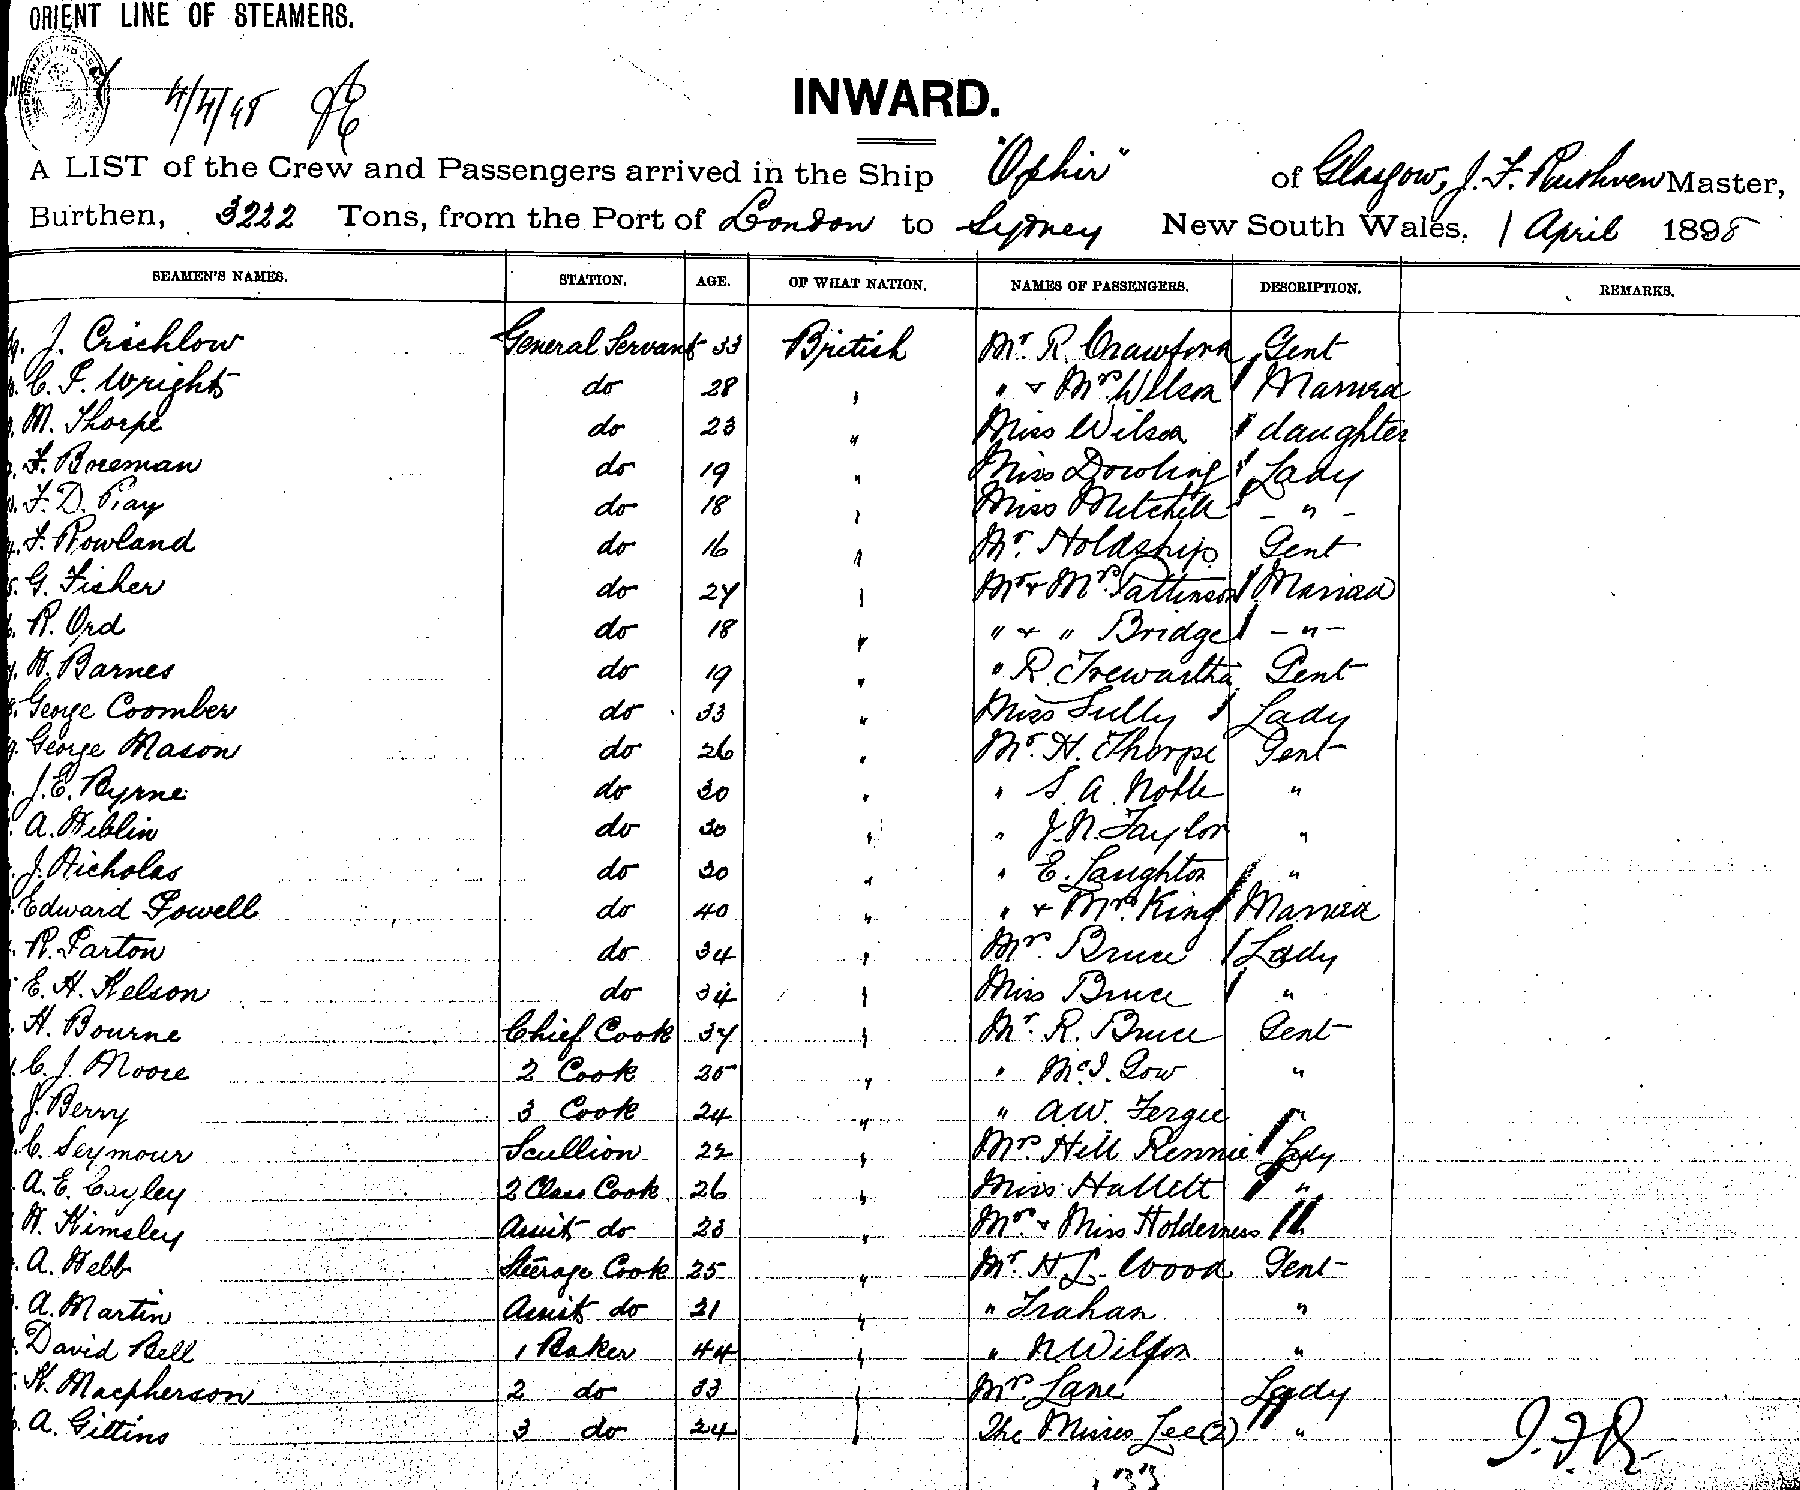 ORIENT LINE OF STEAMERS.
4/4/98
INWARD.
A LIST of the Crew and Passengers arrived in the Ship "Ophir" of Glasgow, J. F. Ruthven Master,
Burthen, 3222 Tons, from the Port of London to Sydney New South Wales, 1 April 1898
SEAMEN'S NAMES. STATION. AGE. OF WHAT NATION. NAMES OF PASSENGERS. DESCRIPTION. REMARKS.
J. Crichlow General Servant 33 British Mr. R. Crawford Gent
C. F. Wright do 28 " " & Mrs Wilson Married
M. Thorpe do 23 " Miss Wilson daughter
F. Boreman do 19 " Miss Dowling Lady
F. D. Pray do 18 " Miss Mitchell - " -
F. Rowland do 16 " Mr. Holdship Gent
G. Fisher do 24 " Mr & Mrs Pattinson Married
R. Ord do 18 " " & " Bridge - " -
H. Barnes do 19 " " R. Trewartha Gent
George Coomber do 33 " Miss Sully Lady
George Mason do 26 " Mr. H. Thorpe Gent
J. E. Byrne do 30 " " S. A. Noble "
A. Hiblin do 30 " " J. N. Taylor "
J. Nicholas do 30 " " E. Laughton "
Edward Powell do 40 " " & Mrs. King Married
R. Parton do 34 " Mrs. Bruce Lady
E. H. Nelson do 34 " Miss Bruce "
H. Bourne Chief Cook 34 " Mr. R. Bruce Gent
C. J. Moore 2 Cook 25 " " "
J. Berry 3 Cook 24 " " A. W. Fergie "
C. Seymour Scullion 22 " Mrs. Hill Rennie Lady
A. E. Cayley 2 Class Cook 26 " Miss Hallett "
H. Kimsley Assist do 23 " Mrs & Miss Holderness
A. Webb Steerage Cook 25 " Mr. H. L. Wood Gent
A. Martin Assist do 21 " " Trahan "
David Bell 1 Baker 44 " " N Wilson "
H. Macpherson 2 do 33 " Mrs. Lane Lady
A. Gittins 3 do 24 " The Misses Lee (2) "
J. F. R.
33